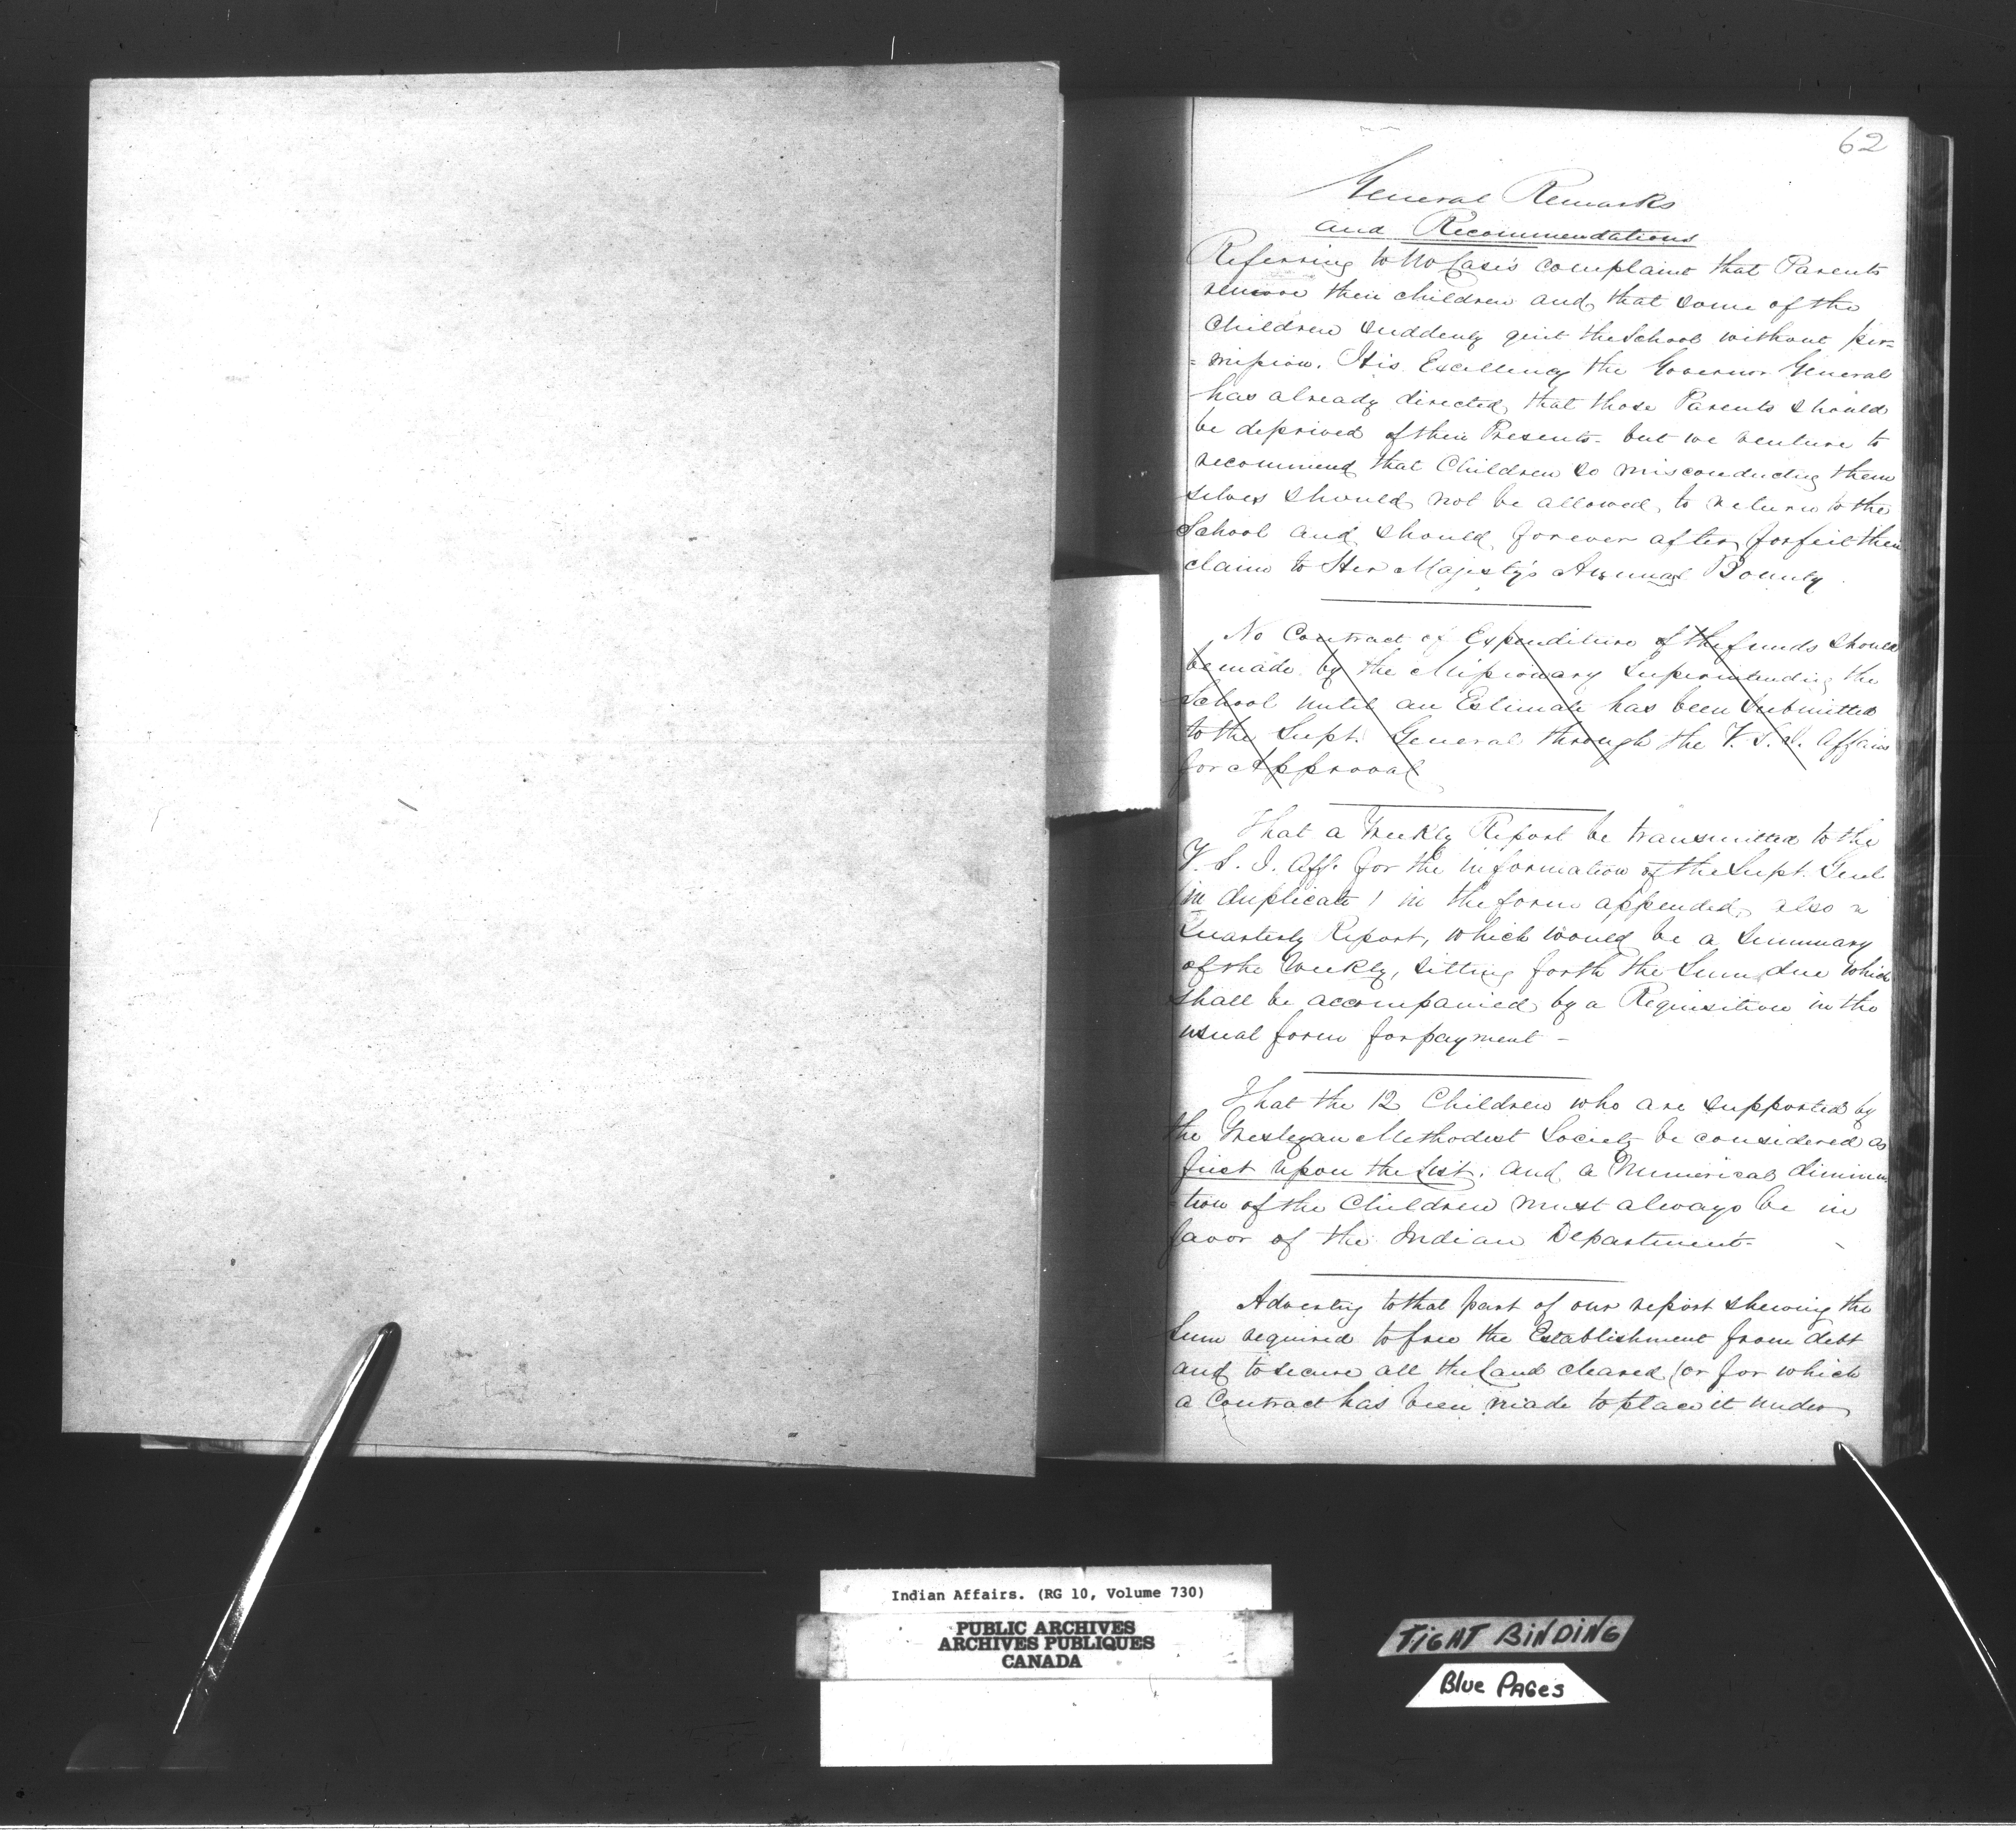 62
General Remarks
and Recommendations
Referring to Mr Case's complaint that Parents
remove their children and that some of the
Children suddenly quit the School without per=
=mission. His Excellency the Governor General
has already directed that those Parents should
be deprived of their Presents - but we venture to
recommend that Children so misconducting them
selves should not be allowed to return to the
School and should forever after forfeit their
claim to Her Majesty's Annual Bounty.
No Contract or Expenditure of the funds should
be made by the Missionary Superintending the
School until an Estimate has been Submitted
to the Supt. General through the V. S. I. Affairs
for Approval
That a Weekly Report be transmitted to the
V. S. I. Aff. for the information of the Supt. Genl
(in duplicate) in the form appended, also a
Quarterly Report, which would be a Summary
of the Weekly, setting forth the Sum due which
shall be accompanied by a Requisition in the
usual form for payment -
That the 12 Children who are supported by
the Wesleyan Methodist Society be considered as
first upon the List, and a Numerical diminu
=tion of the Children must always be in
favor of the Indian Department.
Adverting to that part of our report shewing the
Sum required to free the Establishment from debt
and to secure all the Land cleared (or for which
a Contract has been made to place it under
Indian Affairs. (RG 10, Volume 730)
PUBLIC ARCHIVES
ARCHIVES PUBLIQUES
CANADA
TIGHT BINDING
Blue PAGes